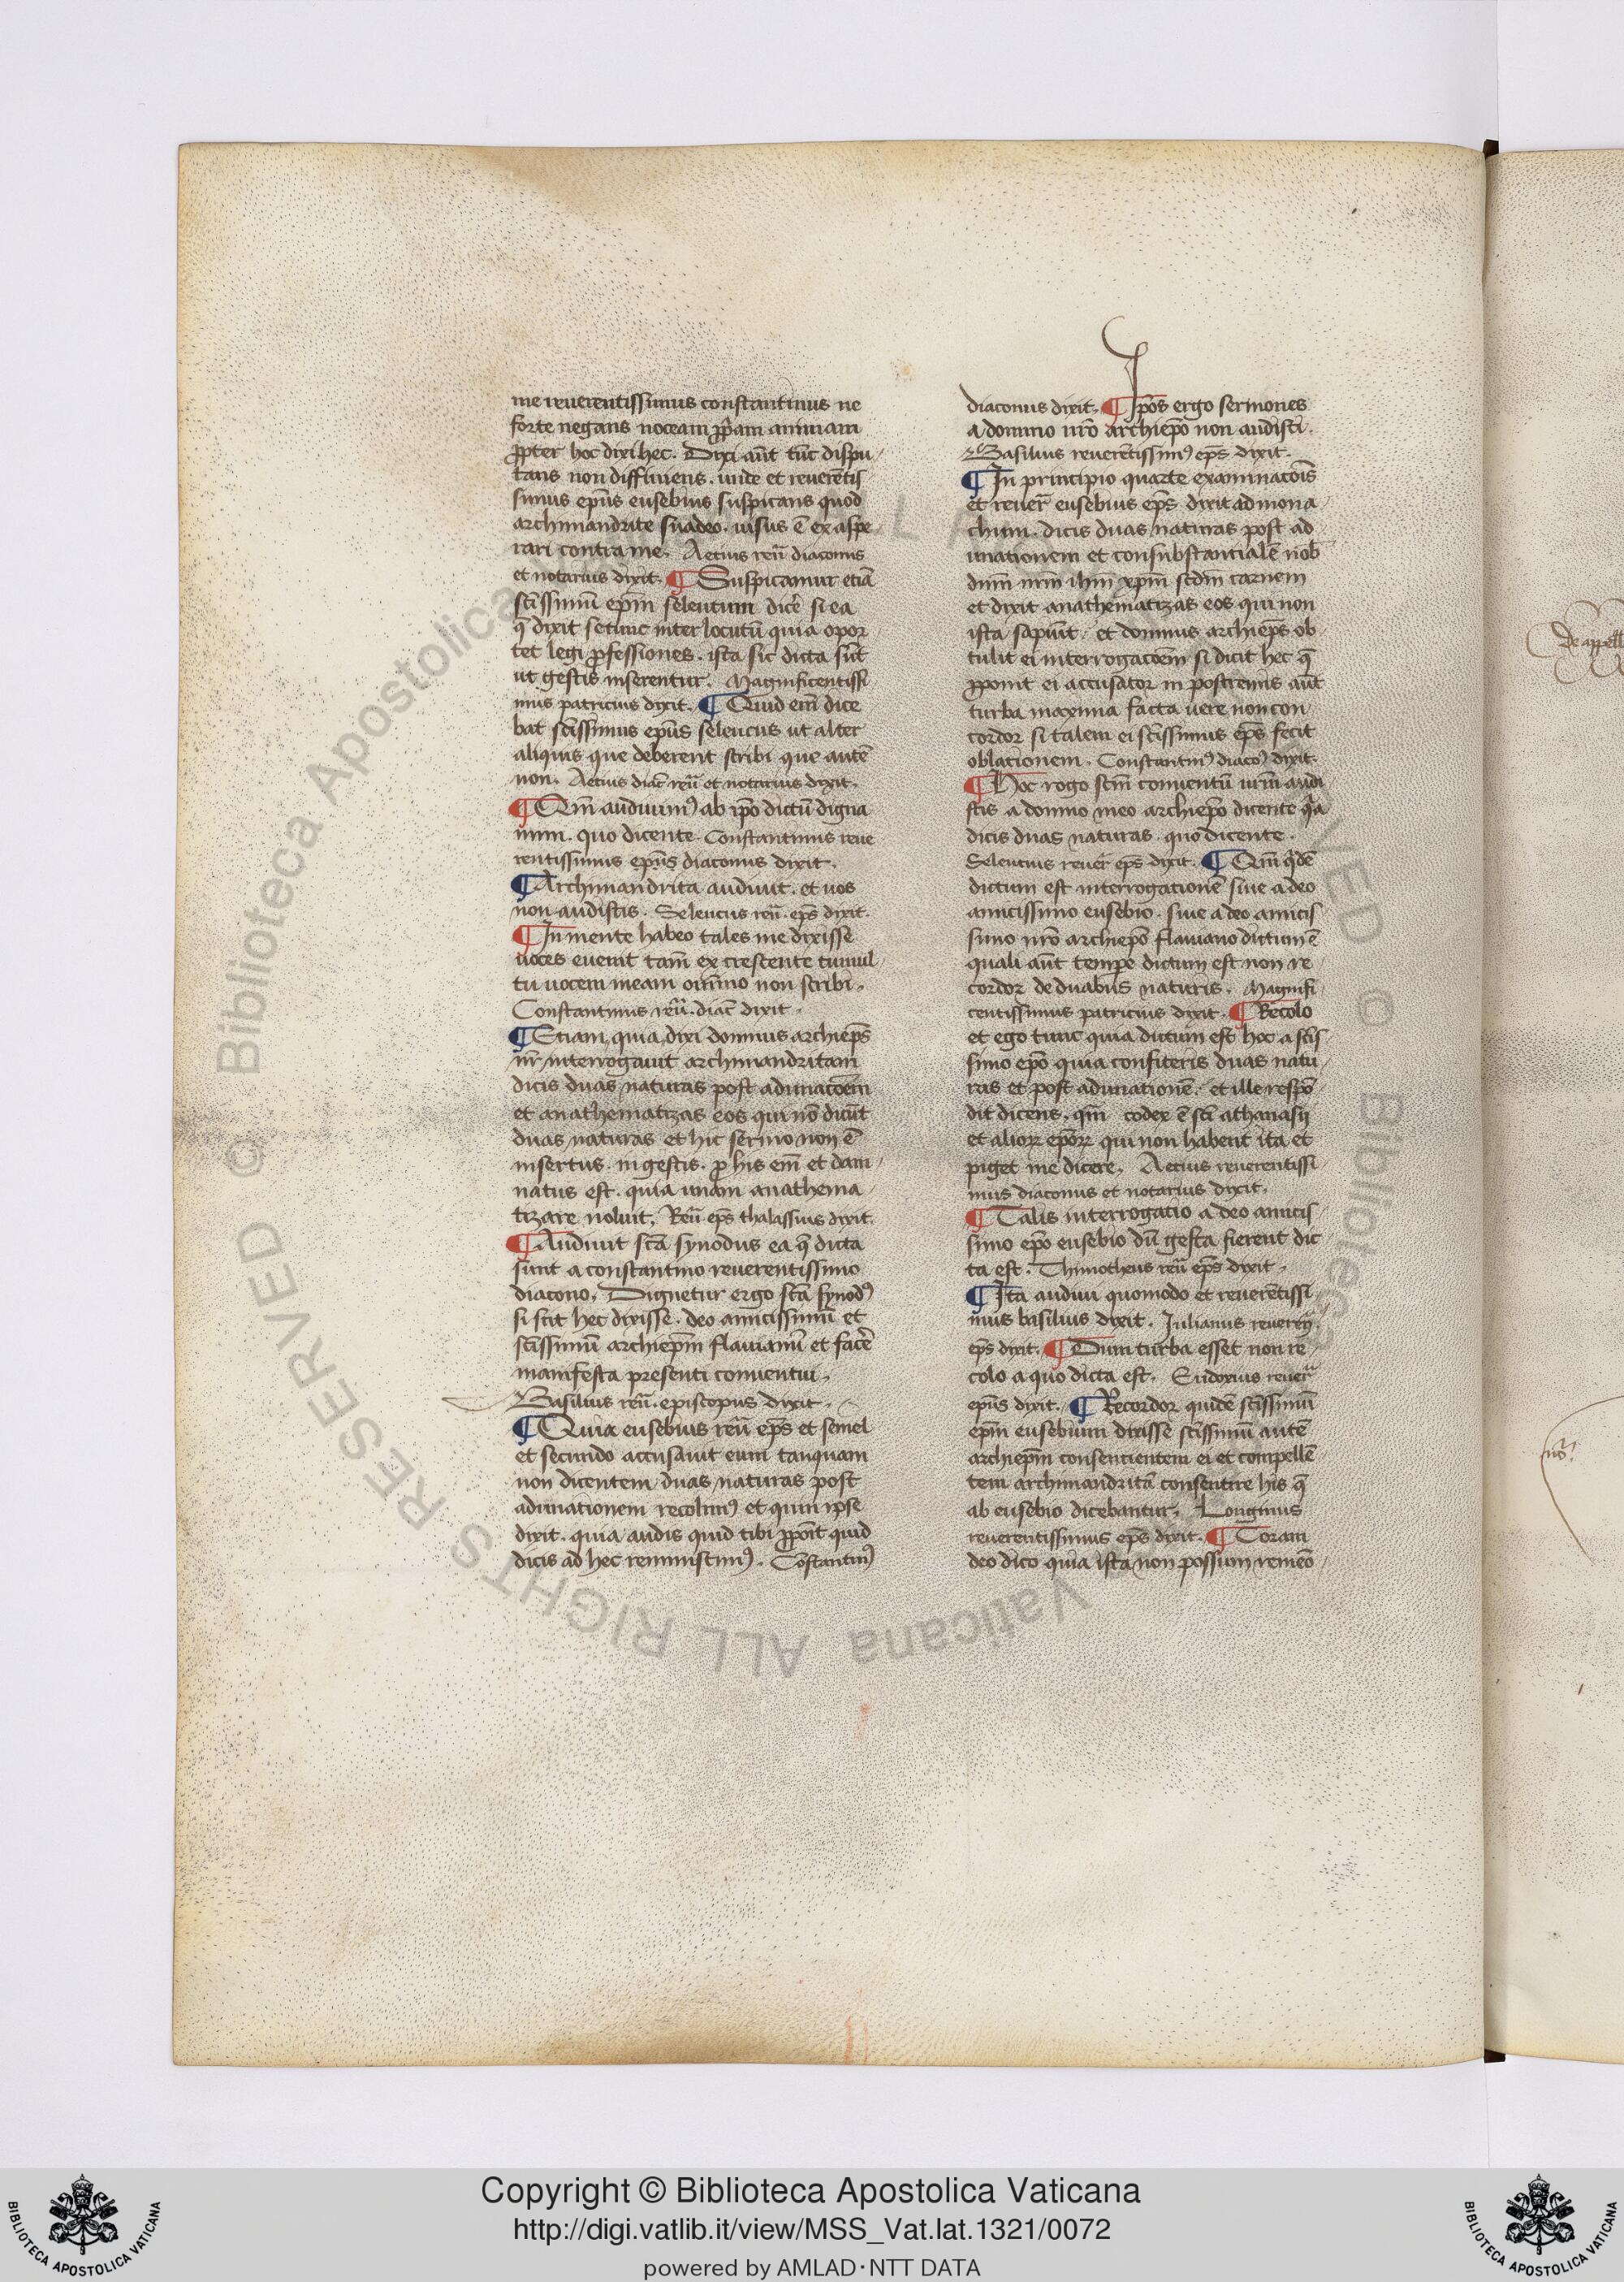 me reuerentissimus constantinus ne
forte negans noceam ꝓp̃am animam
ꝓpter hoc dixi hec. Dixi aūt tūc dispu
tans non diffiniens. unde et reuerētis
simus ep̄us eusebius suspicans quod
archimandrite suadeo. uisus ē ex aspe
rari contra me. Aetius reū diaconus
et notarius dixit. ¶ Suspicamur etiā
sc̄issimū ep̄m seleucum dicē si ea
q̄ dixit se tunc inter locutū quia opor
tet legi ꝓfessiones. ista sic dicta sūt
ut gestis insererentur. Magnificentissi
mus patricius dixit. ¶ Quid em̄ dice
bat sc̄issimus ep̄us seleucus ut alter
aliquis que deberent scribi que autē
non. Aetius diac̄ reū et notarius dixit.
¶ Qm̄ audiuimꝰ ab ip̄o dictū digna
mini. quo dicente. Constantinus reue
rentissimus ep̄us diaconus dixit.
¶ Archimandrita audiuit. et uos
non audistis. Seleucus reū. ep̄s dixit.
¶ In mente habeo tales me dixisse
uoces euenit tam̄ ex crescente tumul
tu uocem meam omnino non scribi.
Constantinus reū. diac̄ dixit.
¶ Etiam quia dixi domnus archiep̄s
nr̄ interrogauit archimandritam
dicis duas naturas post adunacōem
et anathematizas eos qui nō dicūt
duas naturas et hic sermo non ē
insertus in gestis. ꝓ his em̄ et dam
natus est. quia unam anathema
tizare noluit. Reū ep̄s thalassius dixit.
¶ Audiuit sc̄a synodus ea q̄ dicta
sunt a constantino reuerentissimo
diacono. Dignetur ergo sc̄a synodꝰ
si scit hec dixisse. deo amicissimū et
sc̄issimū archiep̄m flauianū et facē
manifesta presenti conuentui.
Basilius reū. episcopus dixit.
¶ Quia eusebius reū ep̄s et semel
et secundo accusauit eum tanquam
non dicentem duas naturas post
adunationem recolimꝰ et quin ipse
dixit. quia audis quid tibi ꝓpōit quid
dicis ad hec reminiscimꝰ. Cōstantinꝰ
diaconus dixit. ¶ Ip̄os ergo sermones
a domino nr̄o archiep̄o non audisti.
Basilius reuerētissimꝰ ep̄s dixit.
¶ In principio quarte examinacōis
et reuer̄ eusebius ep̄s dixit ad mona
chum. dicis duas naturas post ad
unationem et consubstantialē nob̄
dn̄m nr̄m ih̄m xp̄m scdm̄ carnem
et dixit anathematizas eos qui non
ista sapiūt. et domnus archiep̄s ob
tulit ei interrogacōem si dicit hec q̄
ꝓponit ei accusator in postremis aūt
turba maxima facta uere non con
cordor si talem ei sc̄issimus ep̄s fecit
oblationem. Constantinꝰ diacoꝰ dixit.
¶ Hoc rogo sc̄m conuentū ur̄m audi
stis a domno meo archiep̄o dicente qr̄a
dicis duas naturas. quo dicente.
Seleucus reuer̄ ep̄s dixit. ¶ Qm̄ qidē
dictum est interrogationē siue a deo
amicissimo eusebio. siue a deo amicis
simo nr̄o archiep̄o flauiano dictum ē
quali aūt tempe dictum est non re
cordor de duabus naturis. Magnifi
centissimus patricius dixit. ¶ Recolo
et ego tunc quia dictum est hoc a sc̄is
simo ep̄o quia confiteris duas natu
ras et post adunationē. et ille respō
dit dicens. qm̄ codex ē sc̄i athanasij
et alioꝝ ep̄oꝝ qui non habent ita et
piget me dicere. Aetius reuerentissi
mus diaconus et notarius dixit.
¶ Talis interrogatio a deo amicis
simo ep̄o eusebio dū gesta fierent dic
ta est. Thimotheus reū ep̄s dixit.
¶ Ita audiui quomodo et reuerētissi
mus basilius dixit. Iulianus reueren̄
ep̄s dixit. ¶ Dum turba esset non re
colo a quo dicta est. Eudoxius reuer̄
ep̄us dixit. ¶ Recordor quidē sc̄issimū
ep̄m eusebium dixisse sc̄issimū autē
archiep̄m consentientem ei et compellē
tem archimandritā consentire his q̄
ab eusebio dicebantur. Longinus
reuerentissimus ep̄s dixit. ¶ Coram
deo dico quia ista non possum remeō
De appell
Copyright © Biblioteca Apostolica Vaticana
http://digi.vatlib.it/view/MSS_Vat.lat.1321/0072
powered by AMLAD·NTT DATA
BIBLIOTECA APOSTOLICA VATICANA
BIBLIOTECA APOSTOLICA VATICANA
© Biblioteca Apostolica Vaticana ALL RIGHTS RESERVED